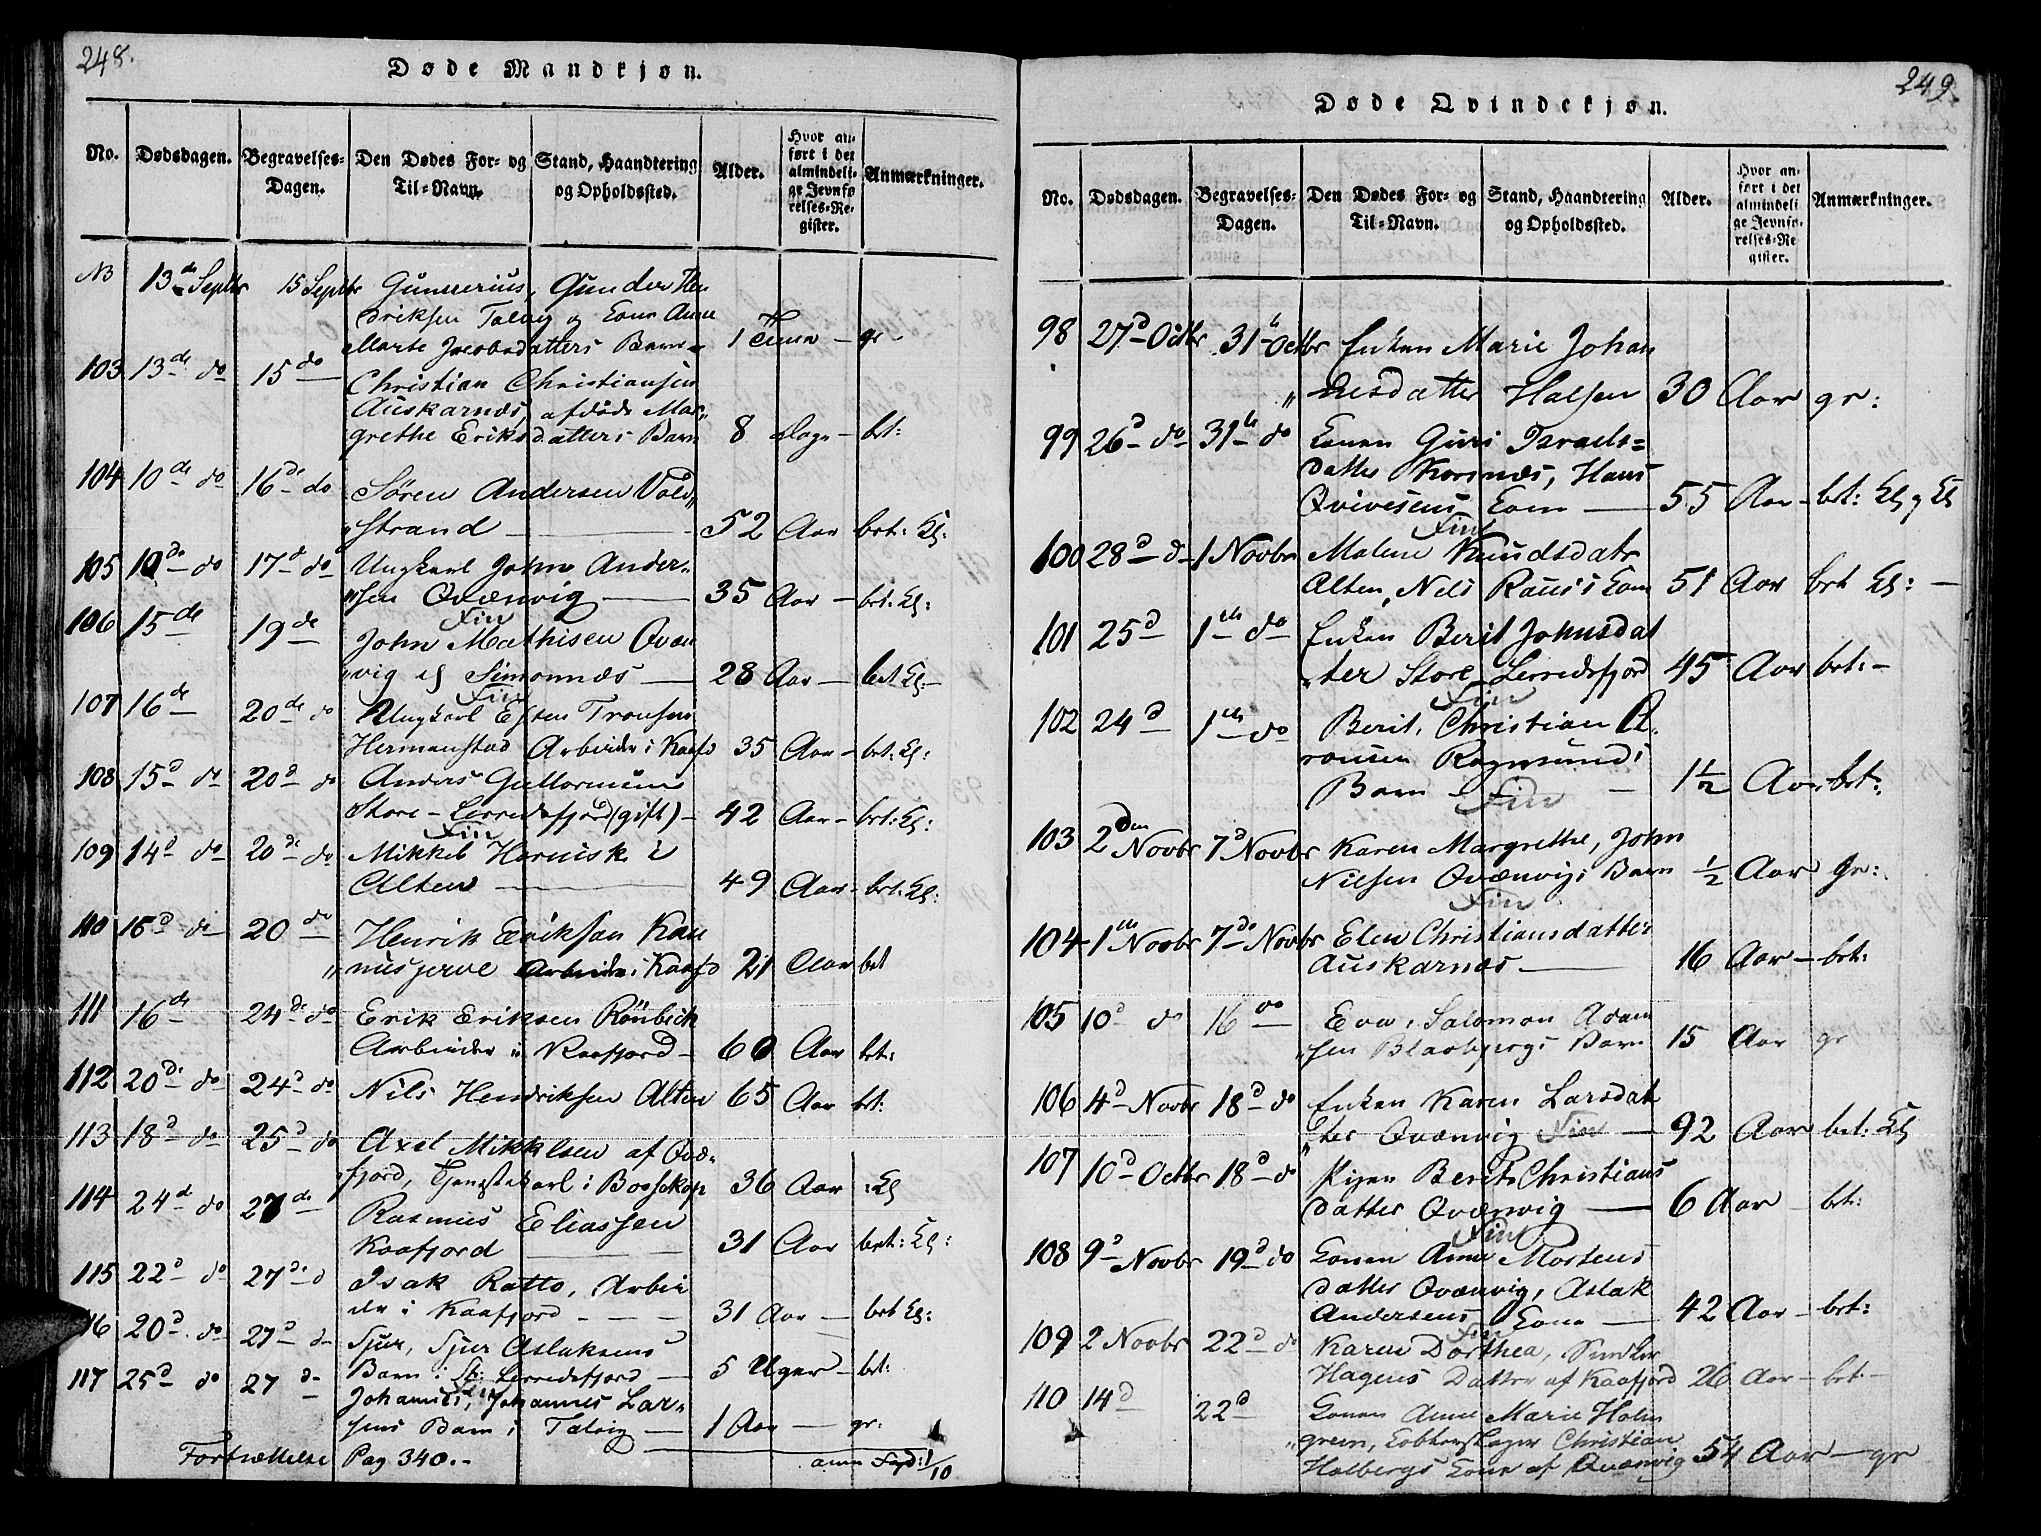 248.
Døde Mandkjøn.
No. Dødsdagen. Begravelses-Dagen. Den Dødes For- og Til-Navn. Stand, Haandtering og Opholdssted. Alder. Hvor anført i det almindelige Jevnførelses-Register. Anmærkninger.
NB 13de Septbr 15 Septbr Gunnerius, Gunder Hen
driksen Talvig og Kone Anne
Marte Jacobsdatters Barn 1 Time — gr
103 13de do 15 do Christian Christiansen
Auskarnæs, afdøde Mar„
grethe Eriksdatters Barn 8 Dage — bet:
104 10de do 16de do Søren Andersen Vold„
„strand — 52 Aar bet: Kl:
105 10de do 17de do Ungkarl John Ander„
„sen Qvænvig — 35 Aar — bet: Kl:
Fin
106 15de 19de John Mathisen Qvæn
„vig af Simonnæs — 28 Aar — bet Kl:
Fin
107 16de 20de do Ungkarl Esten Tronsen
Hermanstad Arbeider i Kaafd 35 Aar — bet: Kl:
108 15d do 20d do Anders Guttormsen
Store-Lerredsfjord (gift) — 42 Aar — bet: Kl:
Fin
109 14d do 20de do Mikkel i
Alten — 49 Aar — bet: Kl:
110 15d do 20 do Henrik Eriksen Kan
„nusjerve Arbeider i Kaafd 21 Aar bet
111 16de 24de do Erik Eriksen Rönbeck
Arbeider i Kaafjord — 60 Aar bet:
112 20de do 24d do Nils Hendriksen Alten 65 Aar bet:
113 18d do 25d do Axel Mikkelsen af Qvæ„
fjord, Tjenestekarl i Bossekop 36 Aar :Kl
114 24d do 27de Rasmus Eliassen
Kaafjord — 31 Aar bet: Kl:
115 22d do 27de d Isak Ratto, Arbei
der i Kaafjord — 31 Aar — bet Kl:
116 20d do 27d d Sjur, Sjur Aslaksens
Barn i St: Lerredsfjord — 5 Uger — bet:
Fin
117 25d do 27 d Johannes, Johannes Lar„
sens Barn i Talvig — 1 Aar — gr:
Fortsættelse Pag 340.-
249.
Døde Qvindekjøn.
No. Dødsdagen. Begravelses-Dagen. Den Dødes For- og Til-Navn. Stand, Haandtering og Opholdssted. Alder. Hvor anført i det almindelige Jevnførelses-Register. Anmærkninger.
98 27d Octbr 31te Octbr Enken Marie Johan
„nesdatter Halsen 30 Aar gr:
99 26d do 31te do Konen Guri Israels-
datter Korsnæs, Hans
Kone — 55 Aar — bet: Kl og Kl
Fin
100 28d d 1 Novbr Malene Knudsdatr
Alten, Nils Kone 51 Aar bet Kl: —
101 25d 1te do Enken Berit Johnsdat
„ter Store Lerredsfjord 45 Aar bet: —
Fin
102 24d 1te do Berit, Christian A.
ronsen Rognsunds
Barn — 1½ Aar bet:
Fin
103 2den Novbr 7d Novbr Karen Margrethe, John
Nilsen Qvænvigs Barn ½ Aar gr:
Fin
104 1te Novbr 7de Novbr Elen Christiansdatter
Auskarnæs — 16 Aar — bet:
105 10d do 16 do Eva, Salomon Adam
„sen Blaabjergs Barn 15 Aar gr
106 4d Novbr 18d do Enken Karen Larsdat
„ter Qvænvig Fin — 92 Aar bet: Kl
107 10d Octbr 18d do Pigen Berit Christians
datter Qvænvig — 6 Aar — bet:
Fin
108 9d Novbr 19d do Konen Anne Mortens
datter Qvænvig, Aslak
Andersens Kone — 42 Aar — bet:
Fin
109 2 Novbr 22d do Karen Dorthea,
Hagens Datter af Kaafjord 26 Aar — bet:
110 14d 22d Konen Anne Marie Holm
„green, Christian
Holbergs Kone af Qvænvig 54 Aar — gr